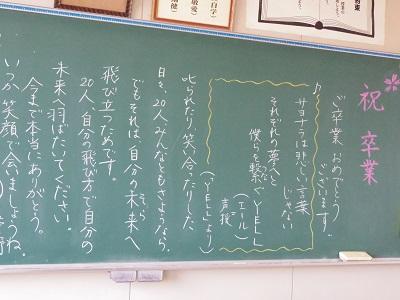 祝 卒業
ご卒業 おめでとう
ございます。
♪
サヨナラは悲しい言葉
じゃない
それぞれの夢へと
僕らを繋ぐYELL
(エール)
声援
(「YELL」より)
叱られたり笑い合ったりした
日々、20人みんなともさよなら。
でもそれは自分の未来へ
そら
飛び立つためです。
20人、自分の飛び方で自分の
未来へ羽ばたいてください。
今まで本当にありがとう。
いつか笑顔で会いましょうね。